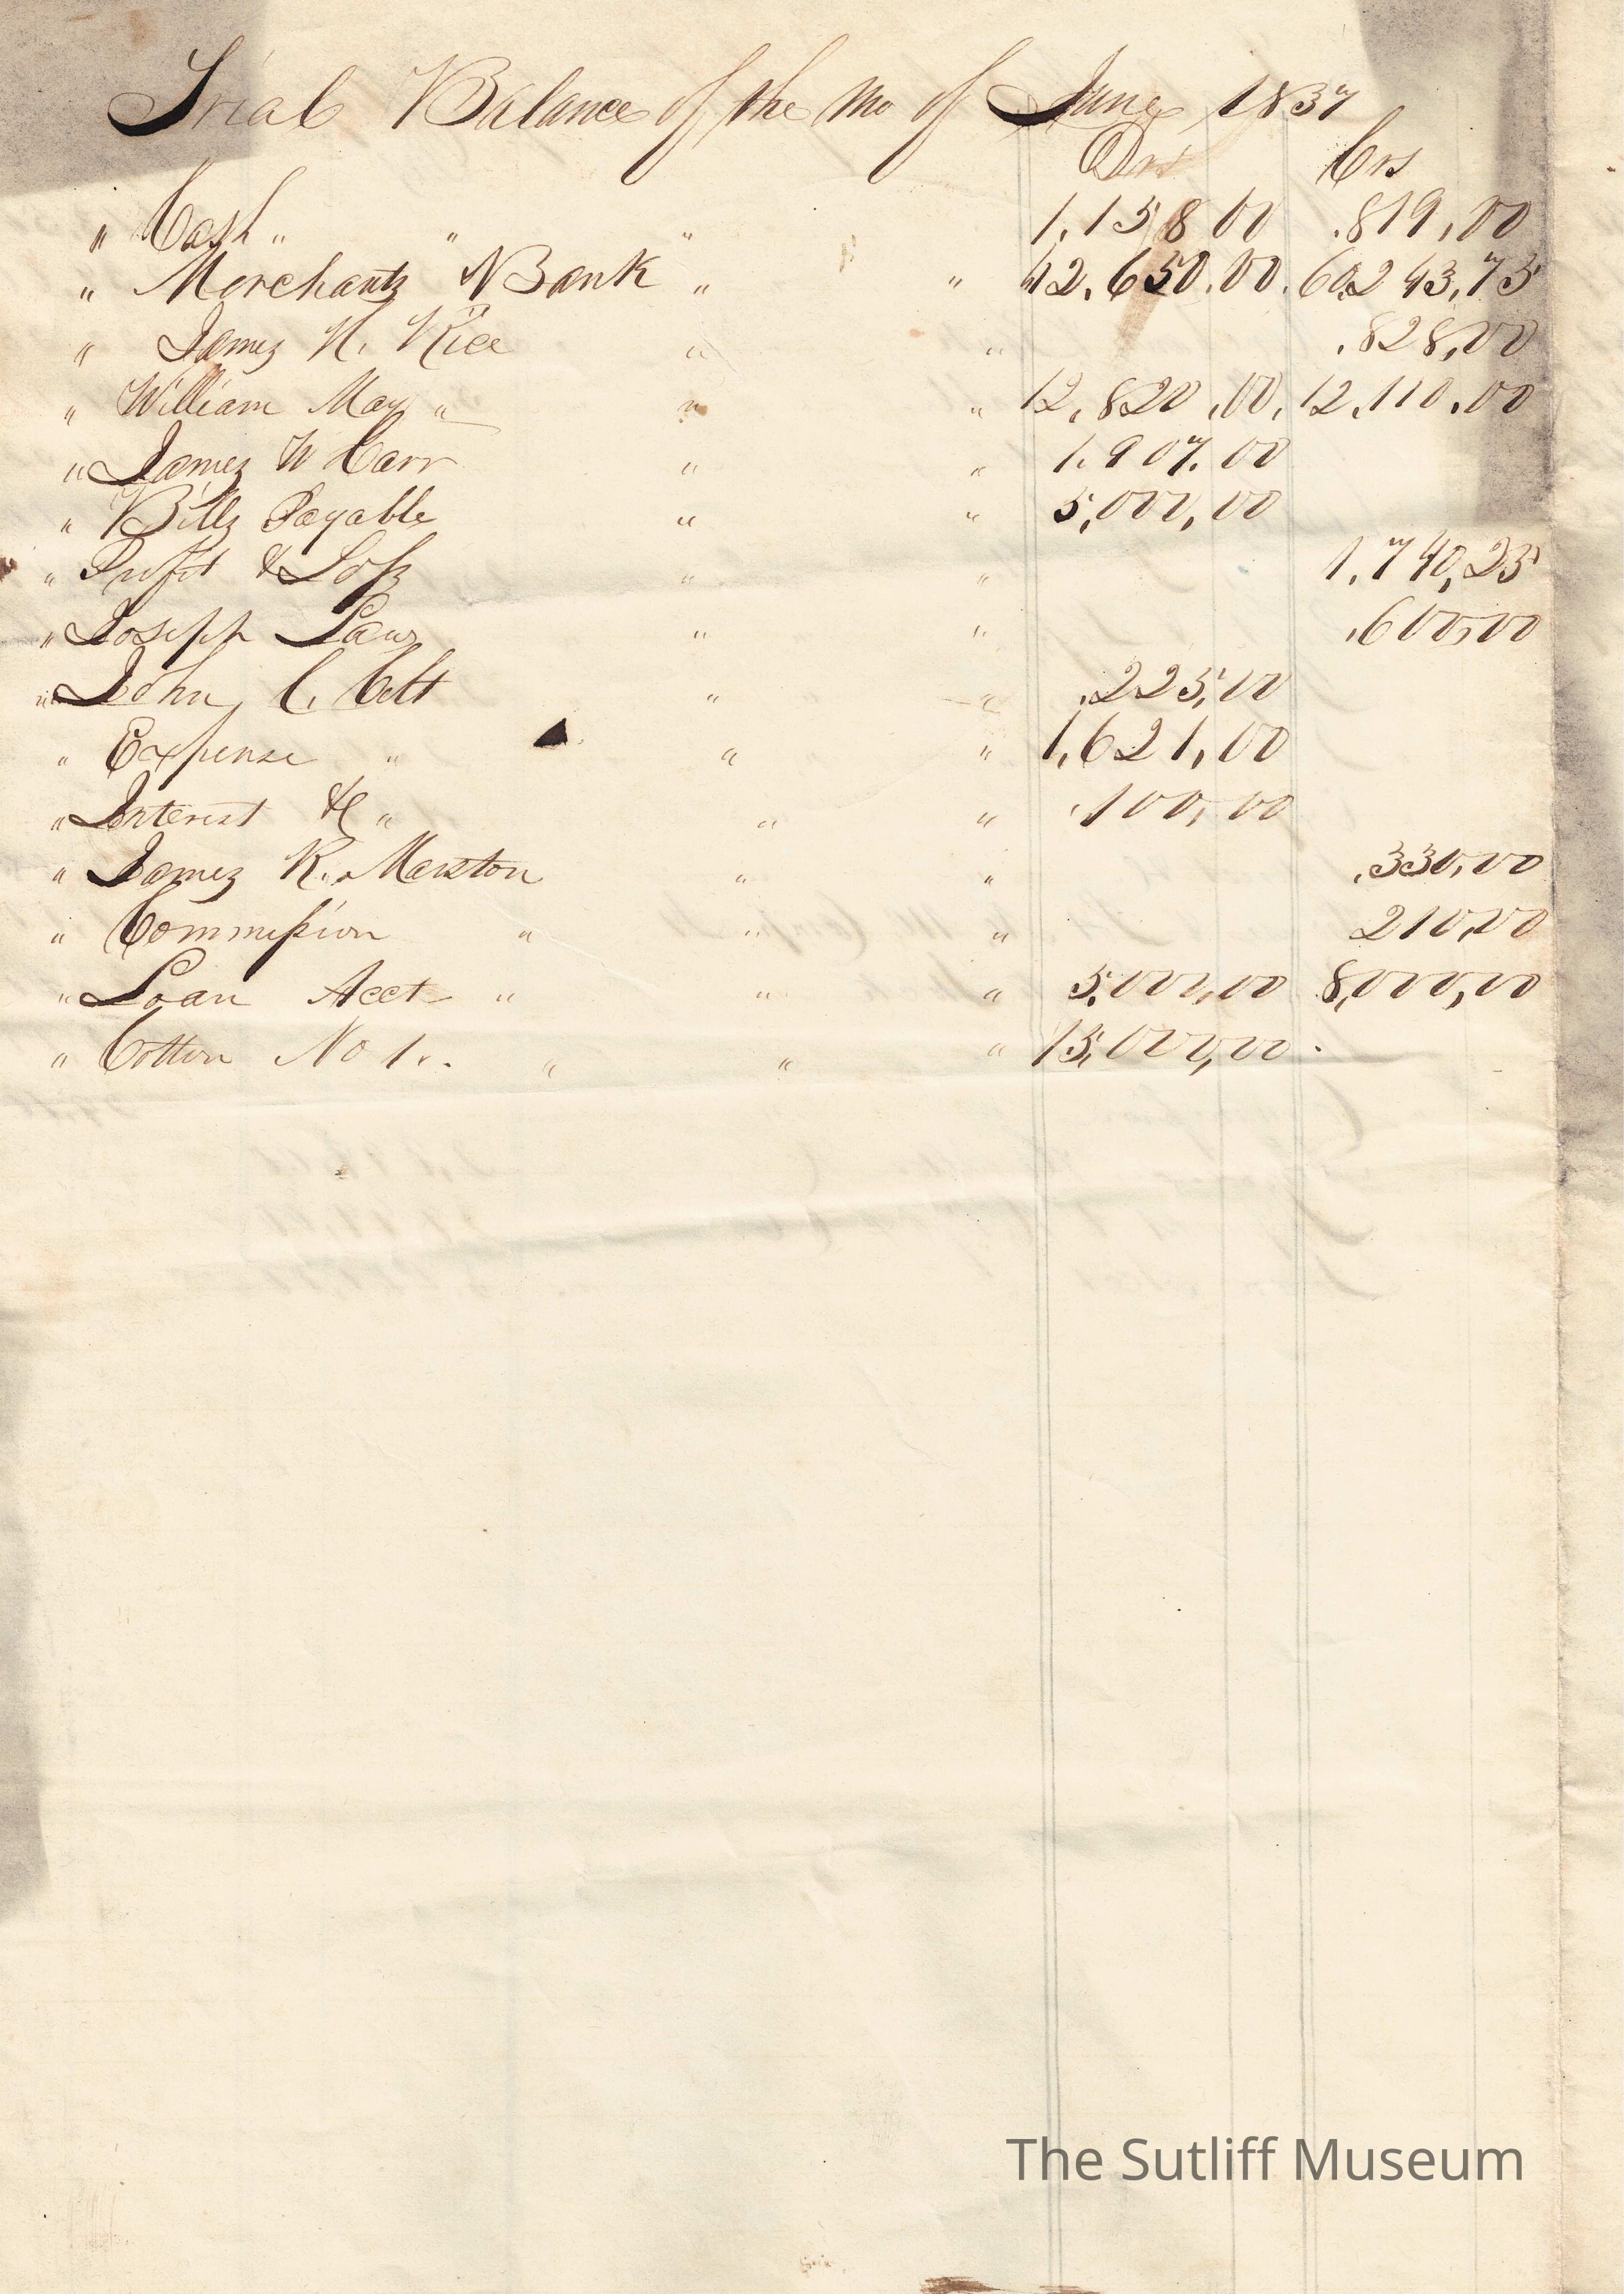 Trial Balance of the mo of June 1837
Drs Crs
" Cash " " " 1,158 00 .819,00
" Merchants Bank " " 42,650.00. 60,243,75
" James H. Rice " " .828,00
" William May " " " 12,820,00, 12,110,00
" James W Carr " " 1,907.00
" Bills Payable " " 5,000,00
" Profit & Loss " " 1,740,25
" Joseph Law " " ,600,00
" John C. Colt " " .225,00
" Expense " " " 1,621,00
" Interest &c " " " ,100,00
" James R. Marston " " ,330,00
" Commission " " " 210,00
" Loan Acct " " " 5,000,00 8,000,00
" Cotton No 1. . " " " 15,000,00 .
The Sutliff Museum